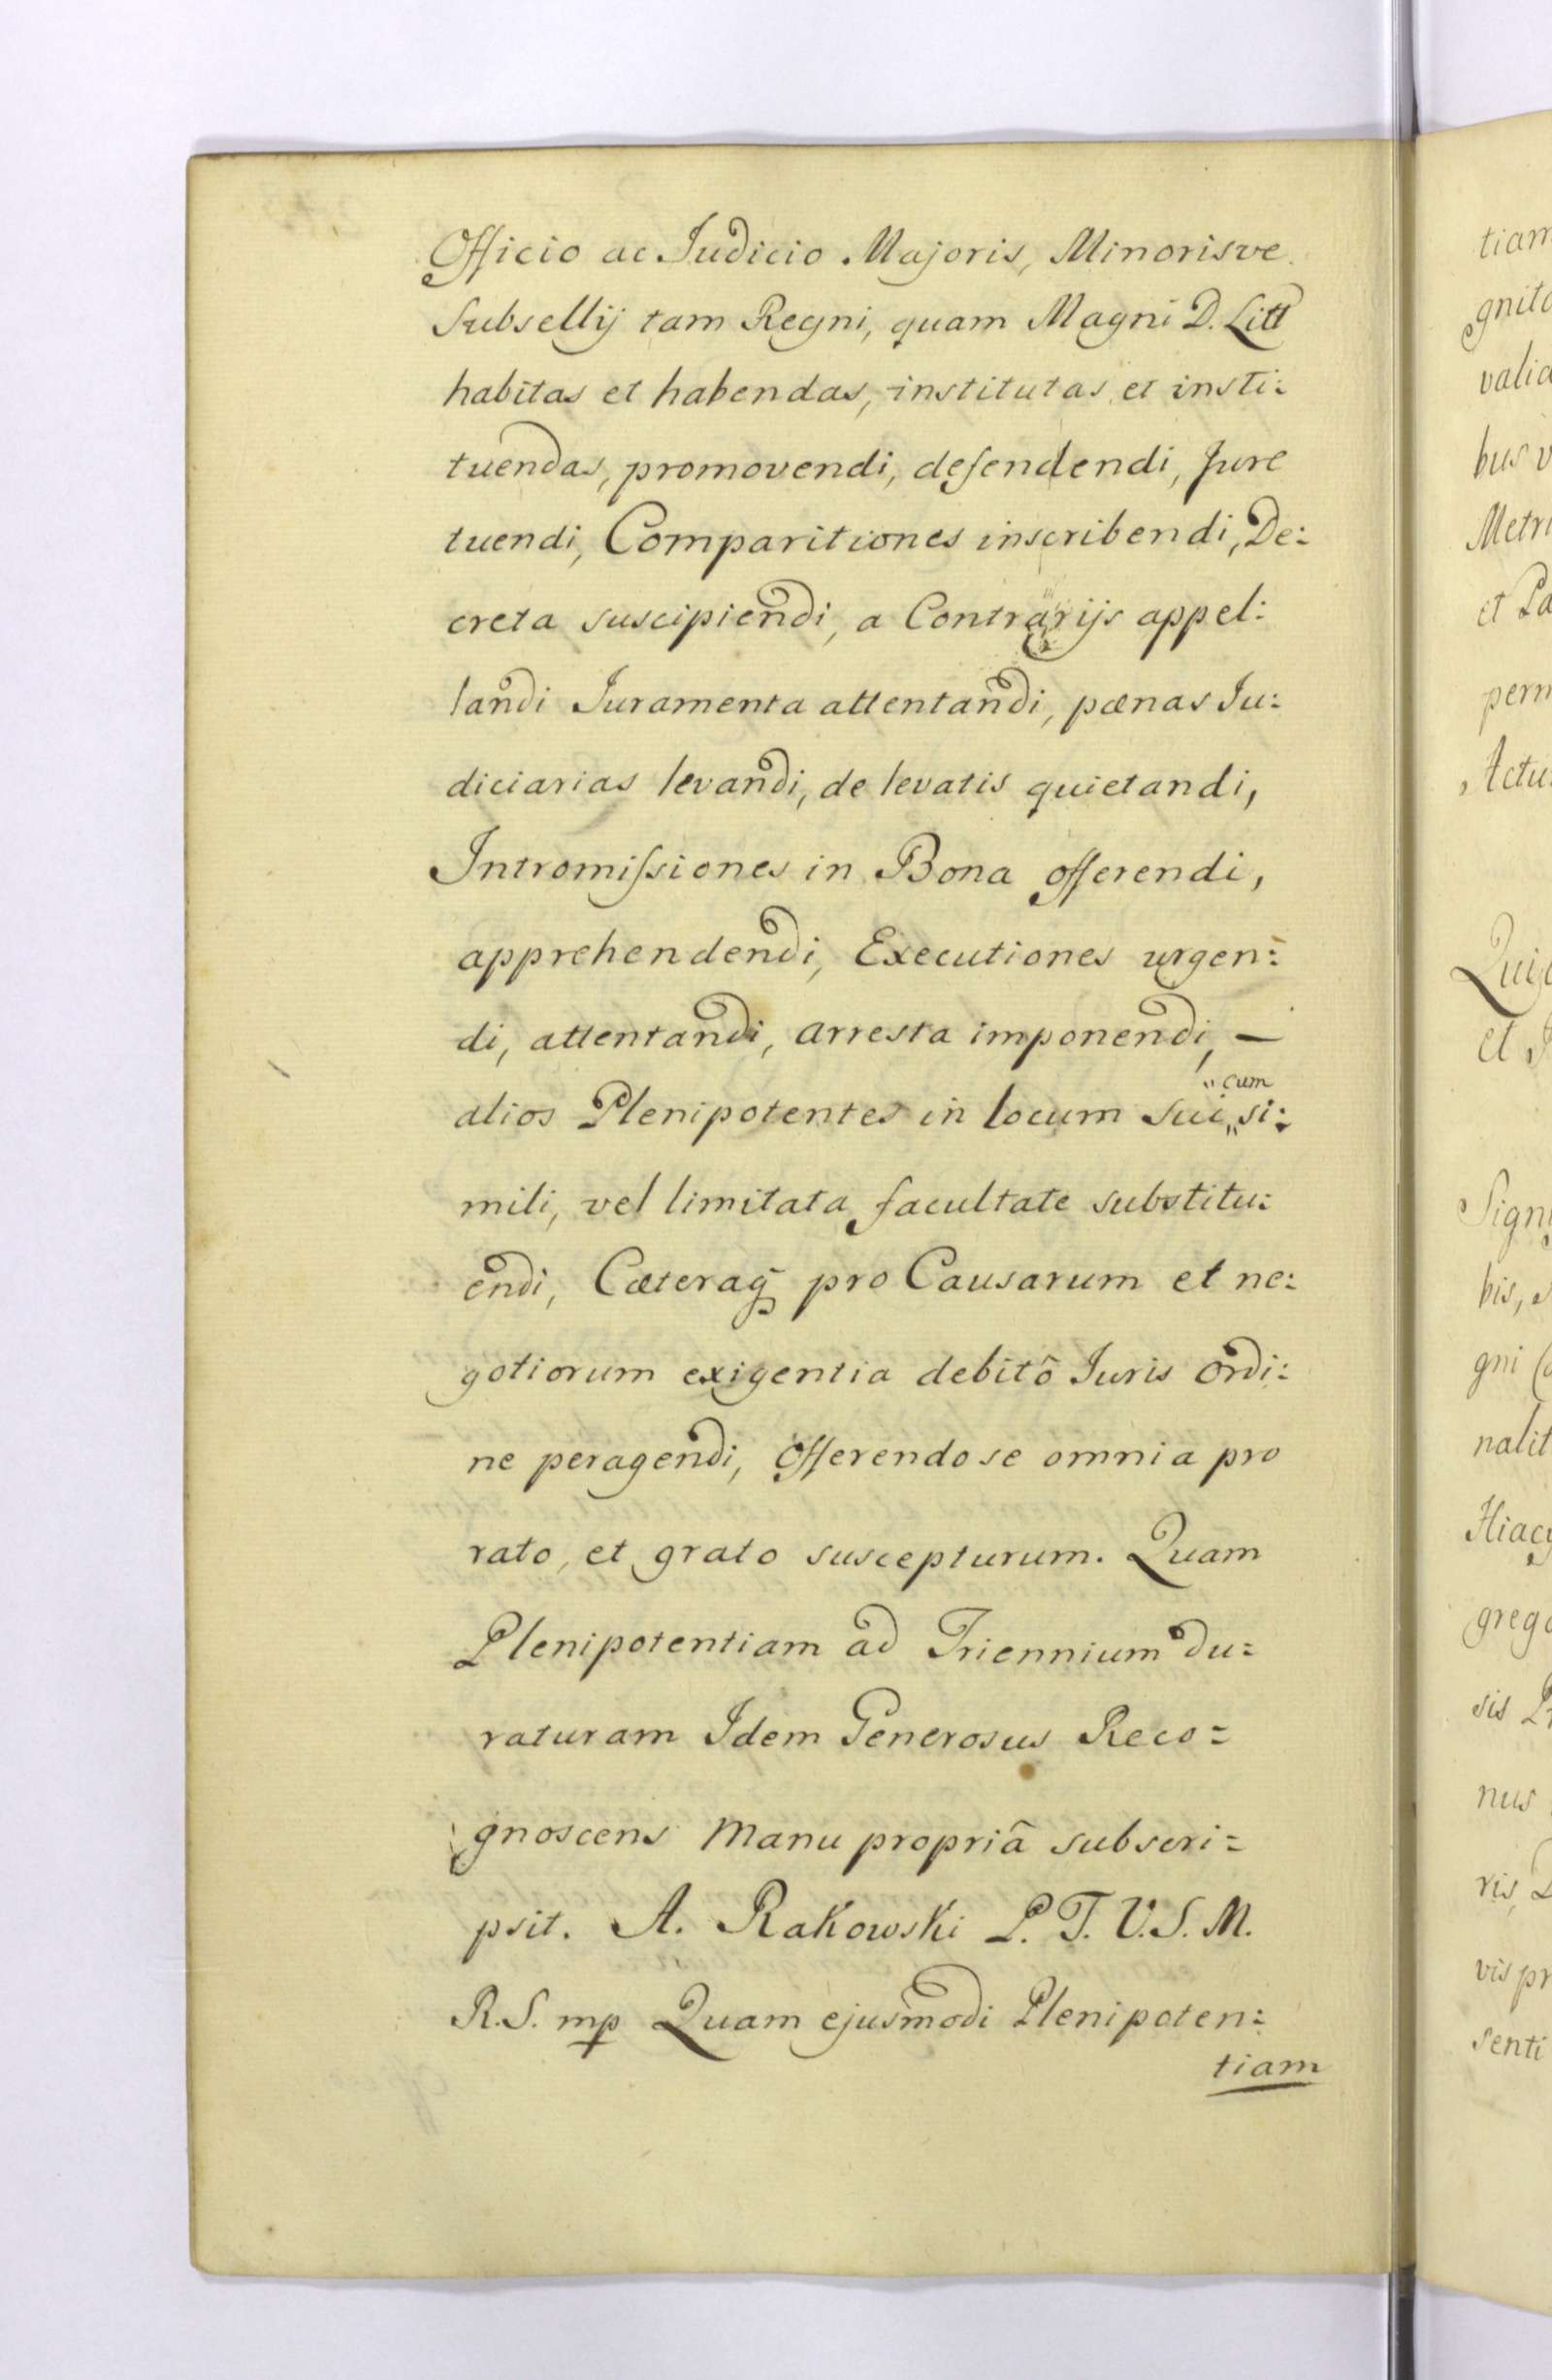 Officio ac Judicio Majoris, Minorisve
Subsellij tam Regni, quam Magni D. Litt
habitas et habendas, institutas et insti:
tuendas, promovendi, defendendi, Jure
tuendi, Comparitiones inscribendi, De:
creta suscipiendi, a Contrarijs appel:
landi Juramenta attentandi, pænas Ju:
diciarias levandi, de levatis quietandi,
Intromissiones in Bona offerendi,
apprehendendi, Executiones urgen:
di, attentandi, arresta imponendi, —
alios Plenipotentes in locum sui „cum„ si:
mili, vel limitata facultate substitu:
endi, Cæteraq̃ pro Causarum et ne:
gotiorum exigentia debitô Juris ordi:
ne peragendi, Offerendo se omnia pro
rato, et grato suscepturum. Quam
Plenipotentiam ad Triennium du:
raturam Idem Generosus Reco:
gnoscens Manu propriâ subscri:
psit. A. Rakowski P. T. V. S. M.
R. S. mp Quam ejusmodi Plenipoten:
tiam
tiam
gnita
valid
bus v
Metri
et Pa
perm
Actu
et
Sign
bis,
gni
nalit
Hiacy
grego
sis
nus
ris,
vis pr
senti